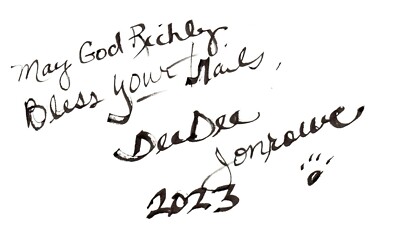 May God Richly
Bless your trails,
DeeDee
Jonrowe
2023